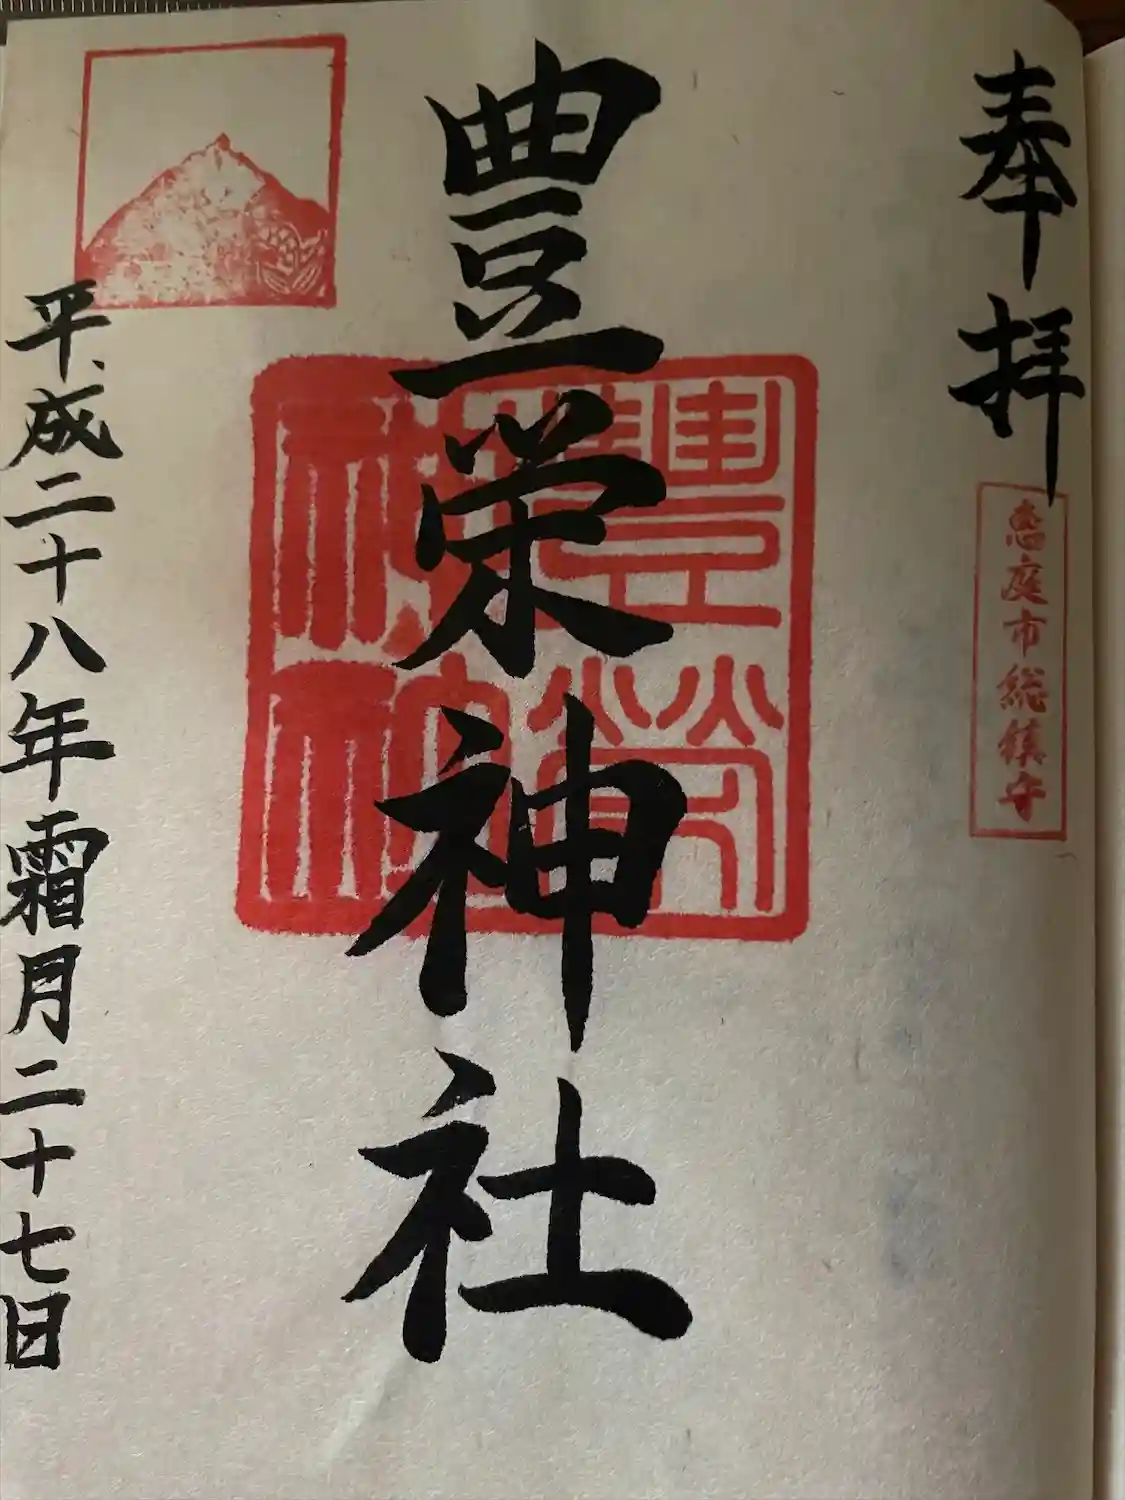 奉拝
恵庭市総鎮守
豊栄神社
平成二十八年霜月二十七日